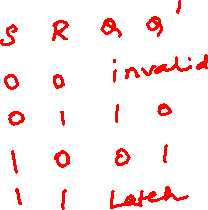 S R Q Q'
0 0 invalid
0 1 1 0
1 0 0 1
1 1 Latch